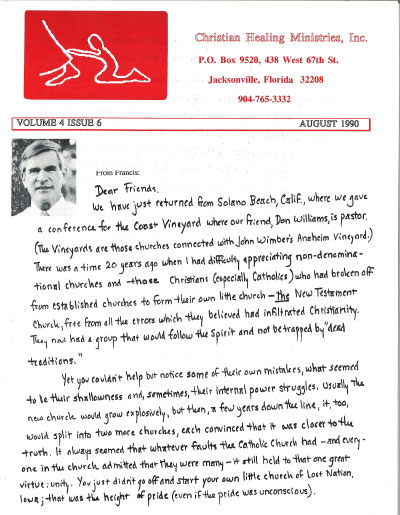 Christian Healing Ministries, Inc.
P.O. Box 9520, 438 West 67th St.
Jacksonville, Florida 32208
904-765-3332
VOLUME 4 ISSUE 6 AUGUST 1990
From Francis:
Dear Friends,
We have just returned from Solano Beach, Calif., where we gave
a conference for the Coast Vineyard where our friend, Don Williams, is pastor.
(The Vineyards are those churches connected with John Wimber's Anaheim Vineyard.)
There was a time 20 years ago when I had difficulty appreciating non-denomina-
tional churches and those Christians (especially Catholics) who had broken off
from established churches to form their own little church — The New Testament
Church, free from all the errors which they believed had infiltrated Christianity.
They now had a group that would follow the Spirit and not be trapped by "dead
traditions."
Yet you couldn't help but notice some of their own mistakes, what seemed
to be their shallowness and, sometimes, their internal power struggles. Usually the
new church would grow explosively, but then, a few years down the line, it, too,
would split into two more churches, each convinced that it was closer to the
truth. It always seemed that whatever faults the Catholic Church had — and every-
one in the church admitted that they were many — it still held to that one great
virtue: unity. You just didn't go off and start your own little church of Lost Nation,
Iowa; that was the height of pride (even if the pride was unconscious).